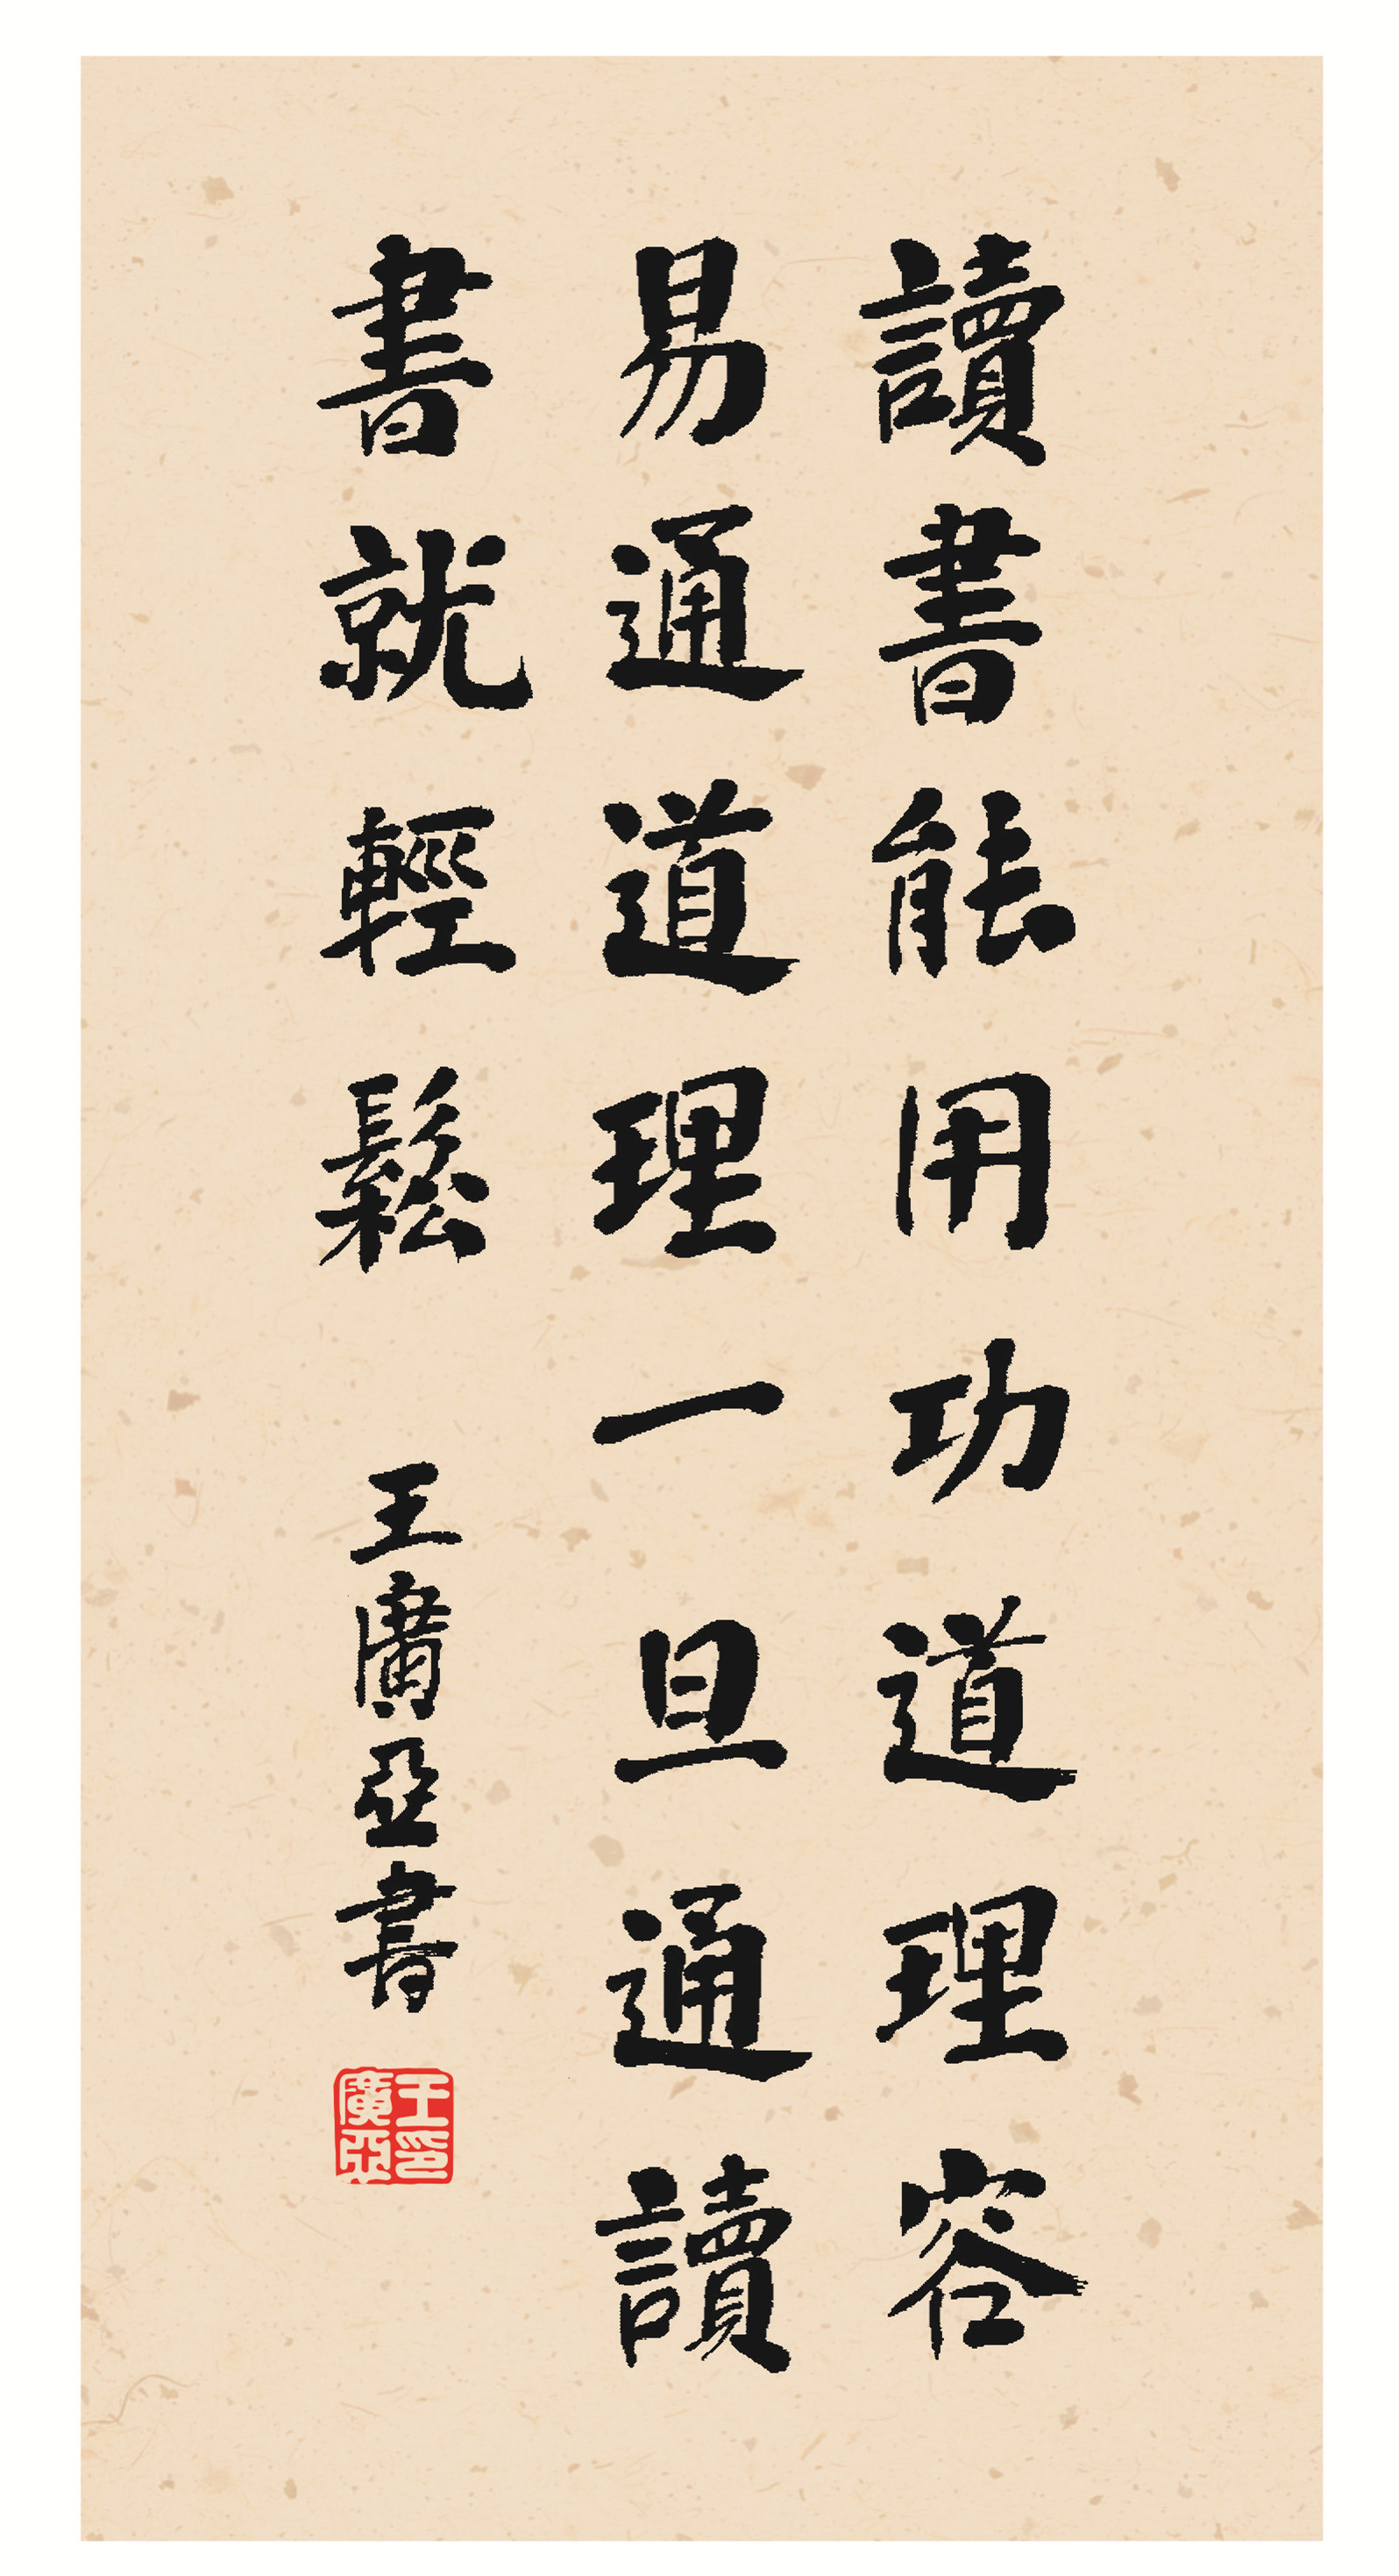 讀書能用功道理容
易通道理一旦通讀
書就輕鬆
王廣亞書
王印
廣亞